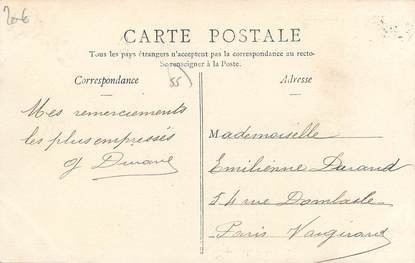 20€
CARTE POSTALE
Tous les pays étrangers n'acceptent pas la correspondance au recto-
Se renseigner à la Poste.
Correspondance
55
Adresse
Mes remerciements
les plus empressés
J Durand
Mademoiselle
Emilienne Durand
54 rue Dombasle
Paris Vaugirard